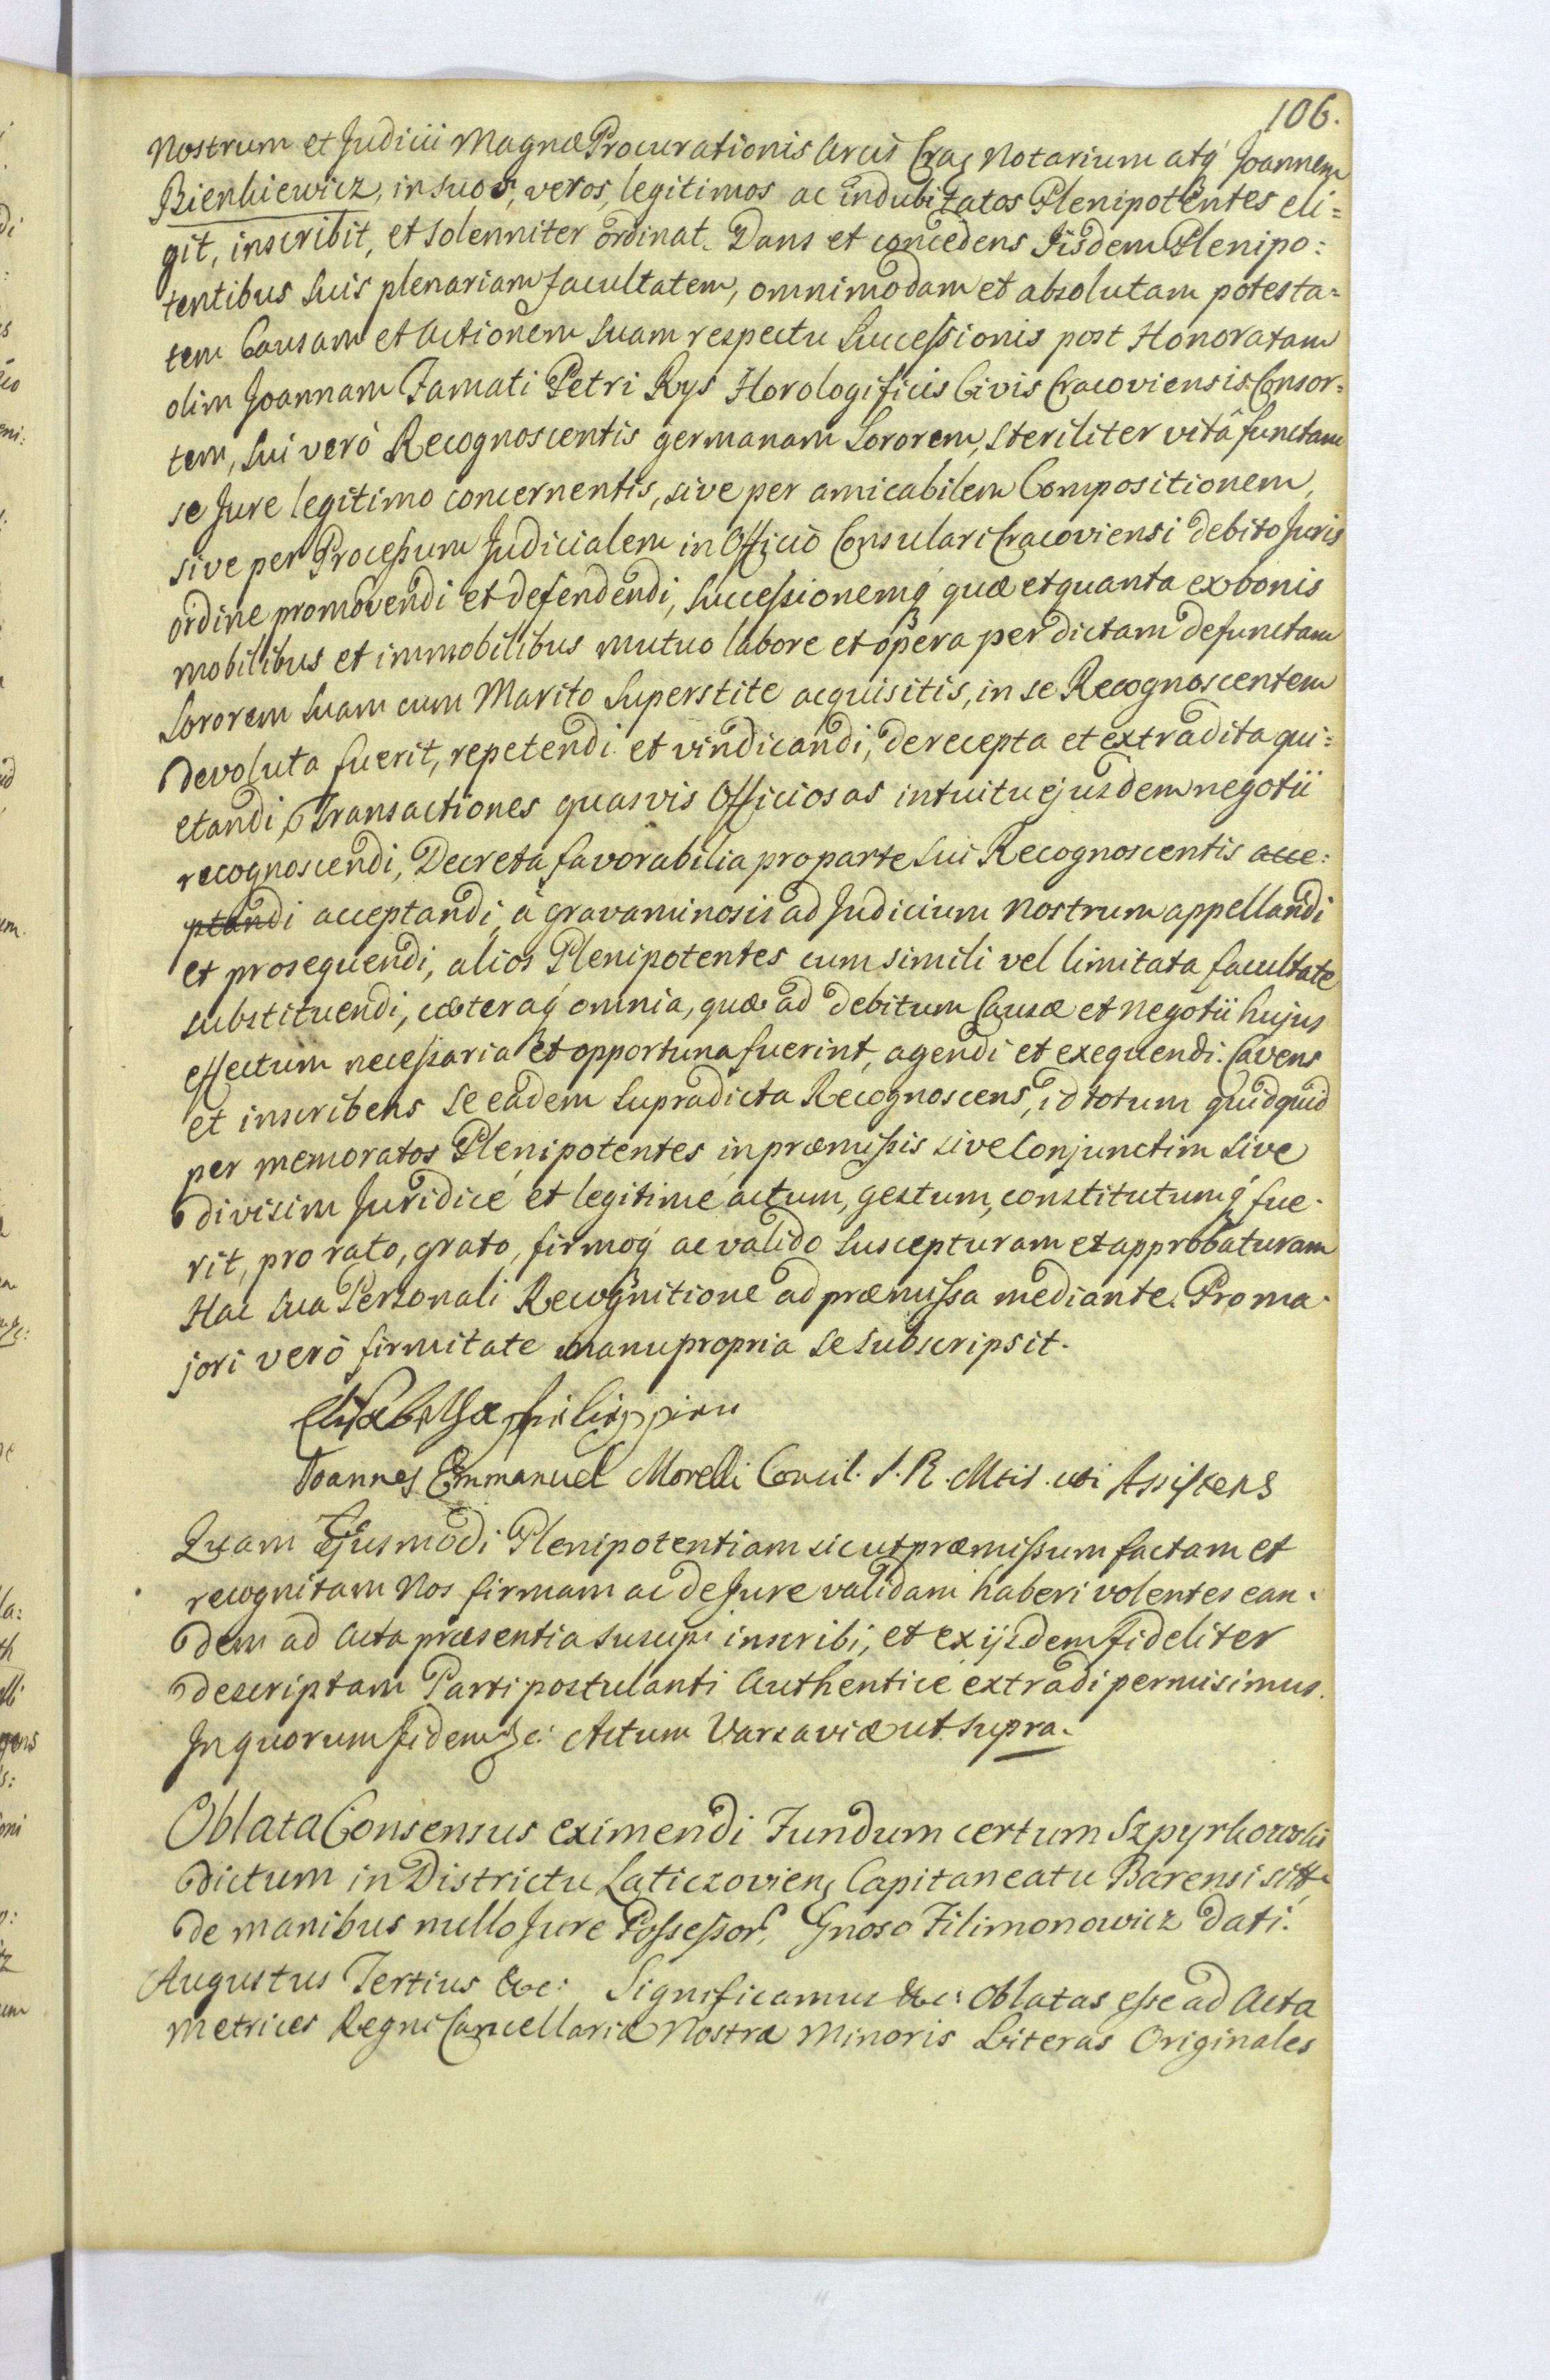 106.
Nostrum et Judicii Magnæ Procurationis Arcis Crac Notarium atq́ Joannem
Bienkiewicz, in suos, veros, legitimos ac indubitatos Plenipotentes eli=
git, inscribit, et solenniter ordinat. Dans et concedens Iisdem Plenipo=
tentibus suis plenariam facultatem, omnimodam et absolutam potesta=
tem Causam et Actionem suam respectu Successionis post Honoratam
olim Joannam Famati Petri Rys Horologificis Civis Cracoviensis Consor=
tem, sui verò Recognoscentis germanam Sororem, steriliter vitâ functam
se Jure legitimo concernentis, sive per amicabilem Compositionem,
sive per Processum Judicialem in Officio Consulari Cracoviensi debito Juris
ordine promovendi et defendendi, Successionemq́ quæ et quanta ex bonis
mobilibus et immobilibus mutuo labore et opera per dictam defunctam
Sororem suam cum Marito Superstite acquisitis, in se Recognoscentem
devoluta fuerit, repetendi et vindicandi, de recepta et extradita qui=
etandi, Transactiones quasvis Officiosas intuitu ejusdem negotii
recognoscendi, Decreta favorabilia pro parte sui Recognoscentis acce=
ptandi acceptandi, à gravaminosis ad Judicium Nostrum appellandi
et prosequendi, alios Plenipotentes cum simili vel limitata facultate
substituendi, cæteraq́ omnia, quæ ad debitum Causæ et negotii hujus
effectum necessaria et opportuna fuerint, agendi et exequendi. Cavens
et inscribens se eadem supradicta Recognoscens, id totum quidquid
per memoratos Plenipotentes in præmissis sive Conjunctim sive
divisim Juridicè et legitimè actum, gestum, constitutumq́ fue=
rit, pro rato, grato, firmoq́ ac valido suscepturam et approbaturam
Hac sua Personali Recognitione ad præmissa mediante. Pro ma=
jori verò firmitate manu propria se subscripsit.
Elisabetha Philippin
Joannes Emmanuel Morelli Consil. S. R. Mtis. uti Assistens
Quam Ejusmodi Plenipotentiam sicut præmissum factam et
recognitam Nos firmam ac de Jure validam haberi volentes ean=
dem ad Acta præsentia suscipi inscribi, et ex ijsdem fideliter
descriptam Parti postulanti Authenticè extradi permisimus.
In quorum fidem &c: Actum Varsaviæ ut supra.
Oblata Consensus eximendi Fundum certum Szpyrkowski
dictum in Districtu Laticzovien Capitaneatu Barensi sitt
de manibus nullo Jure Possessor. Gnoso Filimonowicz dati.
Augustus Tertius &c: Significamus &c: Oblatas esse ad Acta
Metrices Regni Cancellariæ Nostræ Minoris Literas Originales